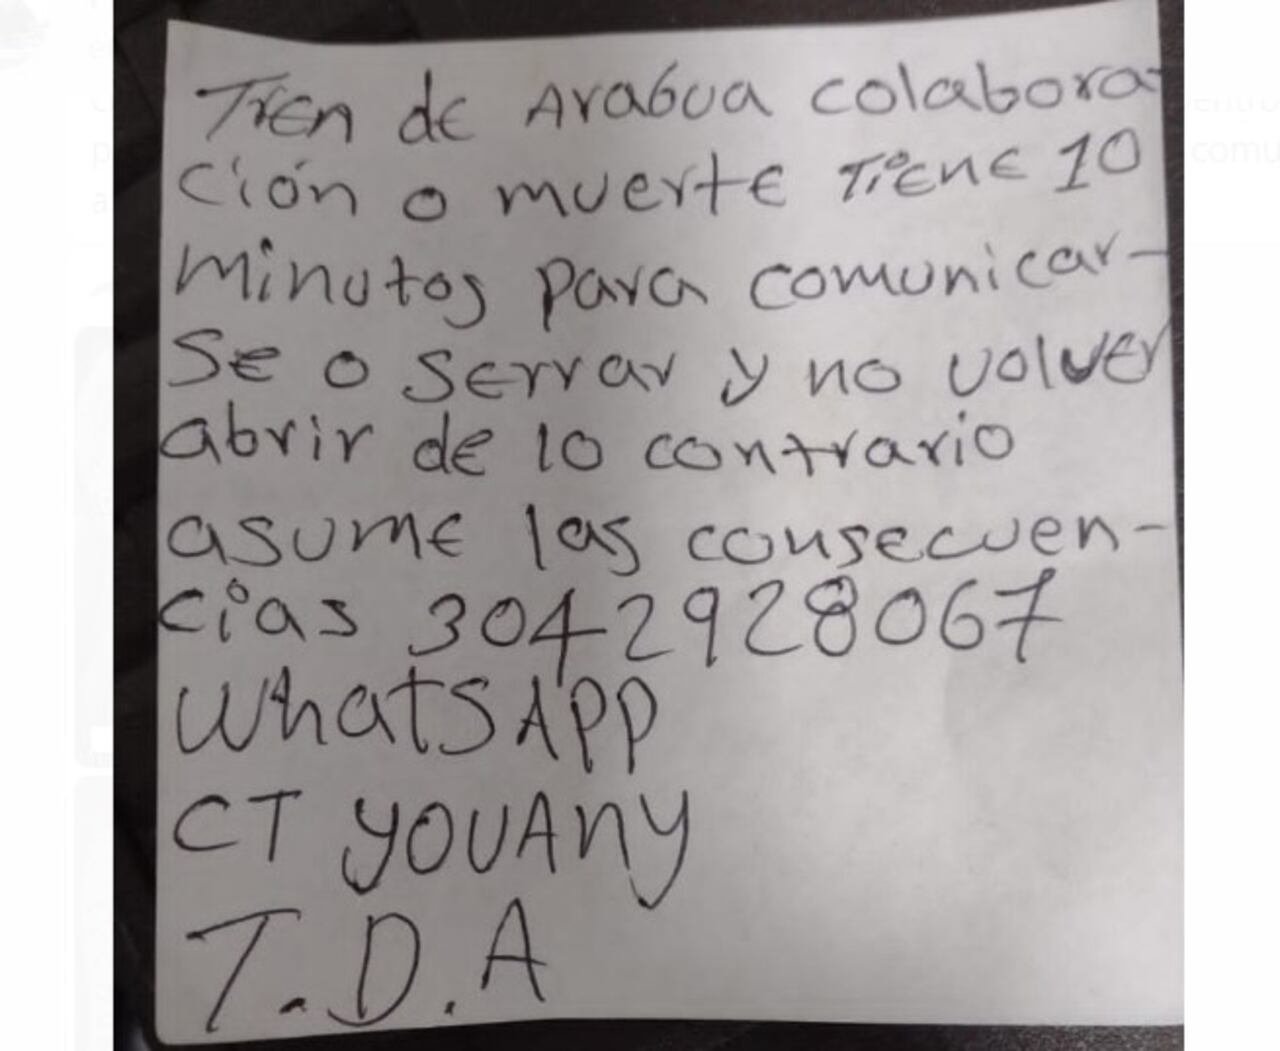 Tren de Aragua colabora-
ción o muerte Tiene 10
minutos para comunicar-
se o serrar y no volver
abrir de lo contrario
asume las consecuen-
cias 3042928067
WhatsAPP
CT YOUANY
T.D.A